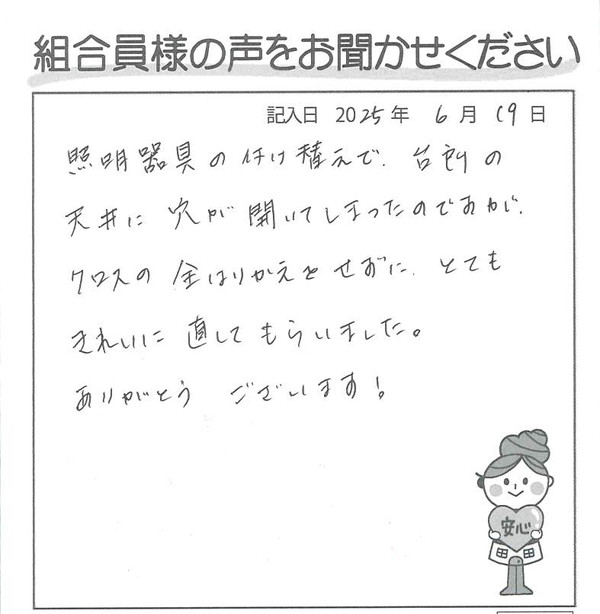 組合員様の声をお聞かせください
記入日 2025年 6月 19日
照明器具の付け替えで、台所の
天井に穴が開いてしまったのですが、
クロスの全はりかえをせずに、とても
きれいに直してもらいました。
ありがとう ございます!
安心